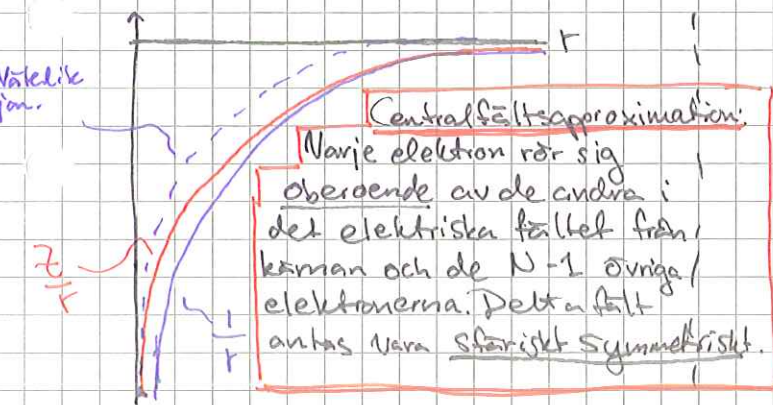 r
Vätelik
jon.
Centralfältsapproximation:
Varje elektron rör sig
oberoende av de andra i
det elektriska fältet från
kärnan och de N-1 övriga
elektronerna. Detta fält
antas vara sfäriskt symmetriskt.
Z/r
1/r